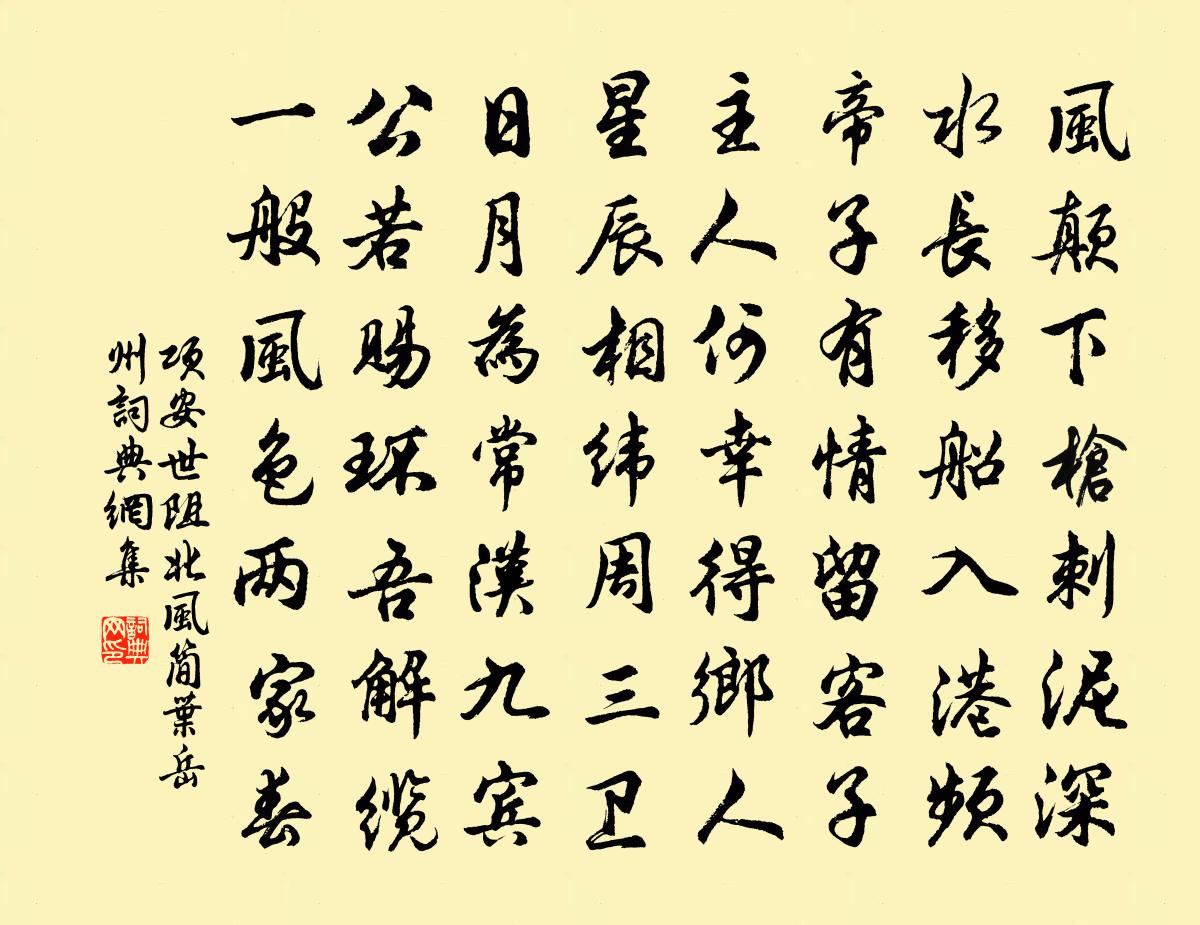 風颠下槍刺泥深
水長移船入港頻
帝子有情留客子
主人何幸得鄉人
星辰相緯周三卫
日月為常漢九宾
公若賜环吾解缆
一般風色两家春
项安世阻北風简葉岳
州詞典網集
詞典
网印